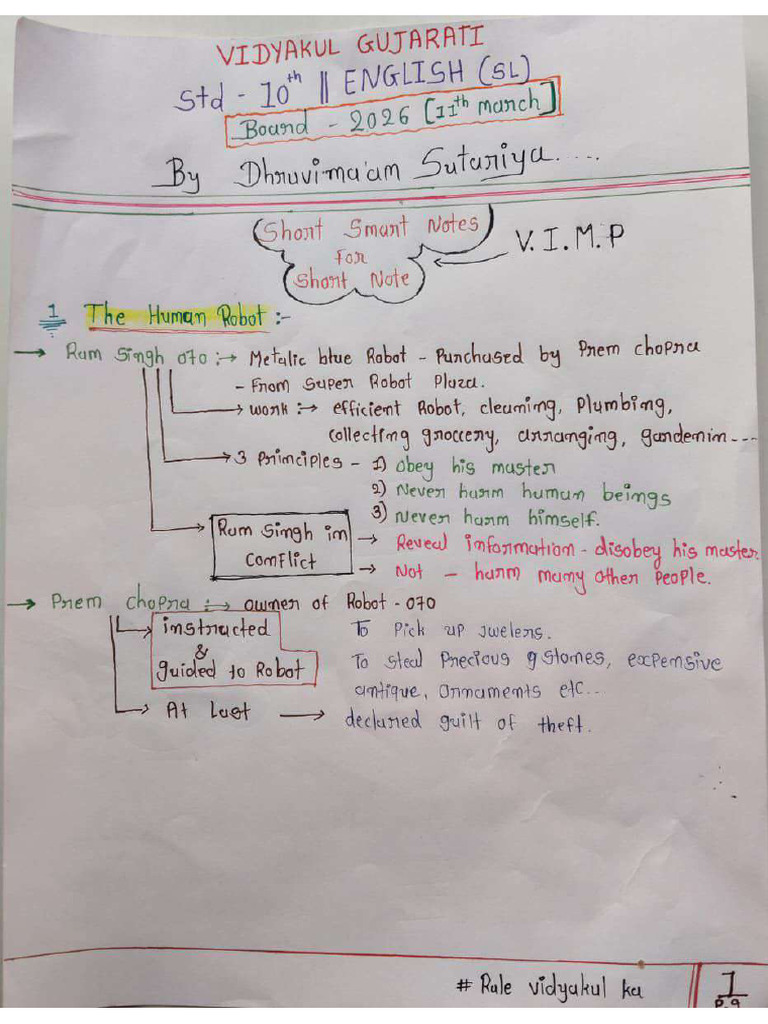 VIDYAKUL GUJARATI
Std - 10th || ENGLISH (SL)
Board - 2026 [11th march]
By Dhruvima'am Sutariya....
Short Smart Notes
For
Short Note
V.I.M.P
1 The Human Robot :-
→ Ram Singh 070 :→ Metalic blue Robot - Purchased by Prem chopra
- From Super Robot Plaza.
→ work :→ efficient Robot, cleaning, Plumbing,
collecting groccery, arranging, gardenin---
→ 3 Principles - 1) obey his master
2) Never harm human beings
3) Never harm himself.
→ Ram Singh in
Conflict
→ Reveal information - disobey his master.
→ Not - harm many other People.
→ Prem chopra :→ owner of Robot - 070
→ instructed
&
guided to Robot
To Pick up jwelers.
To steal Precious gstones, expensive
antique, Ornaments etc...
→ At last → declared guilt of theft.
# Rule vidyakul ka
1
P.9